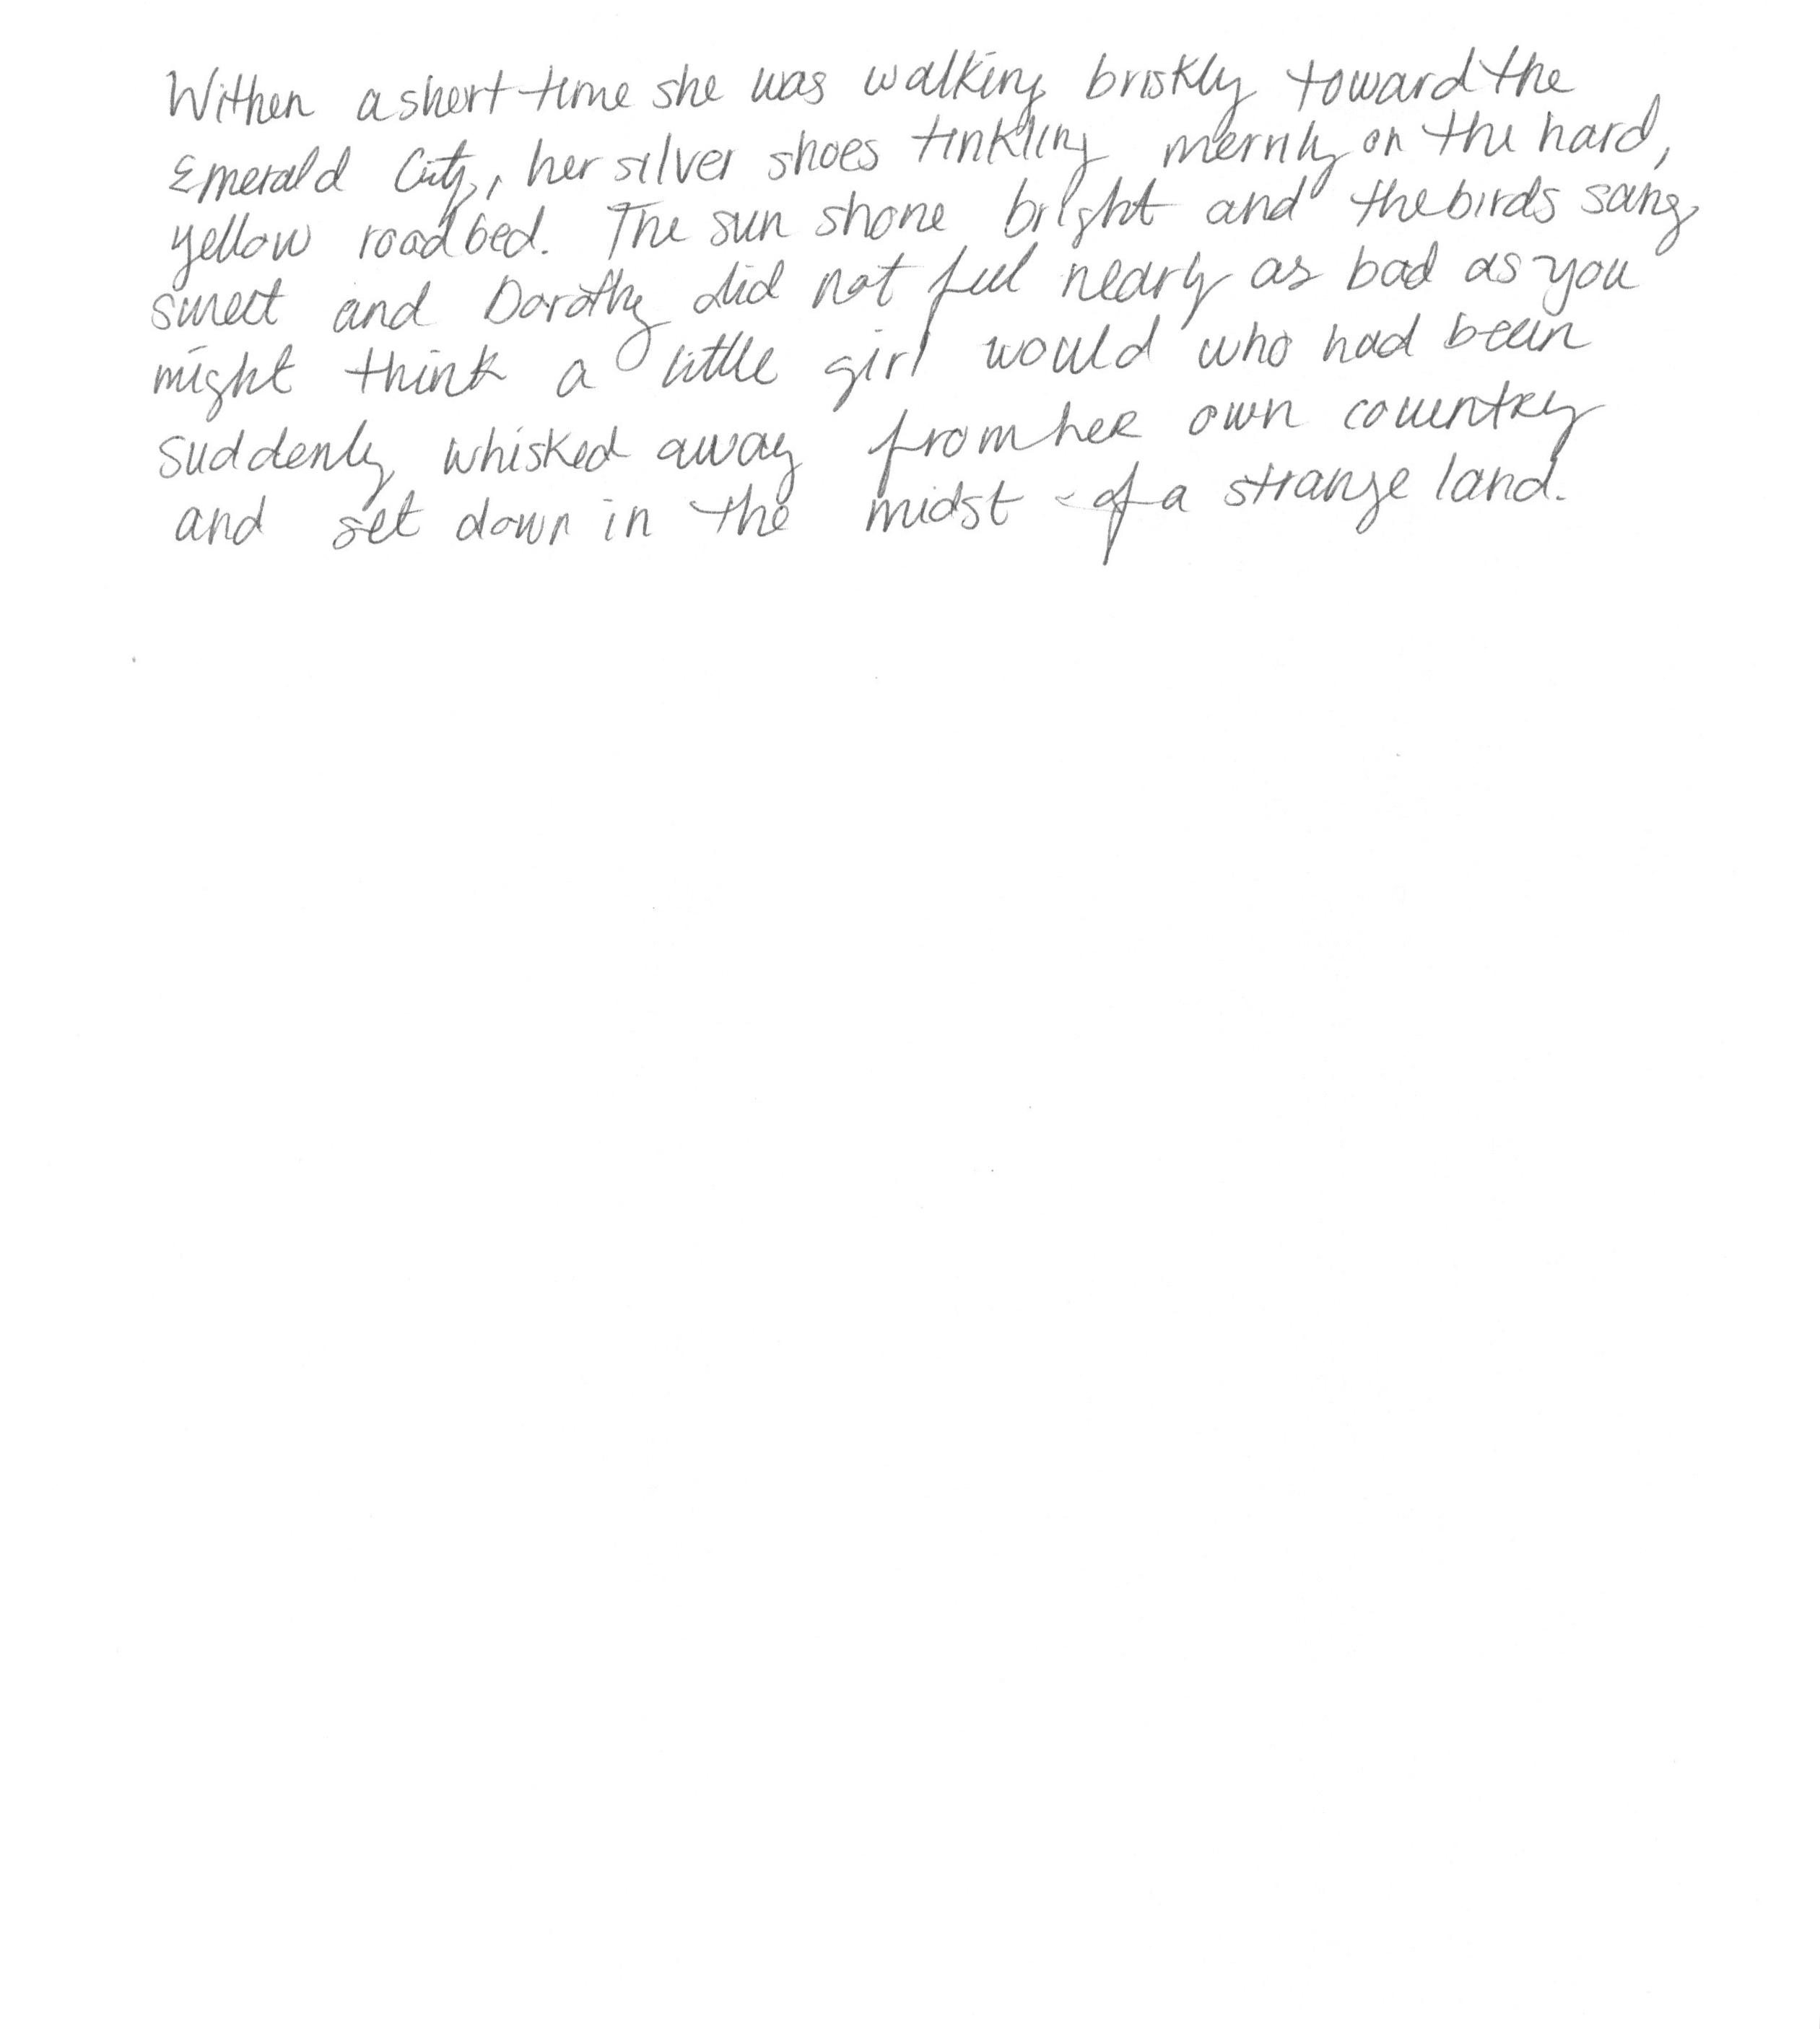 Within a short time she was walking briskly toward the
Emerald City, her silver shoes tinkling merrily on the hard,
yellow roadbed. The sun shone bright and the birds sang
sweet and Dorothy did not feel nearly as bad as you
might think a little girl would who had been
suddenly whisked away from her own country
and set down in the midst of a strange land.